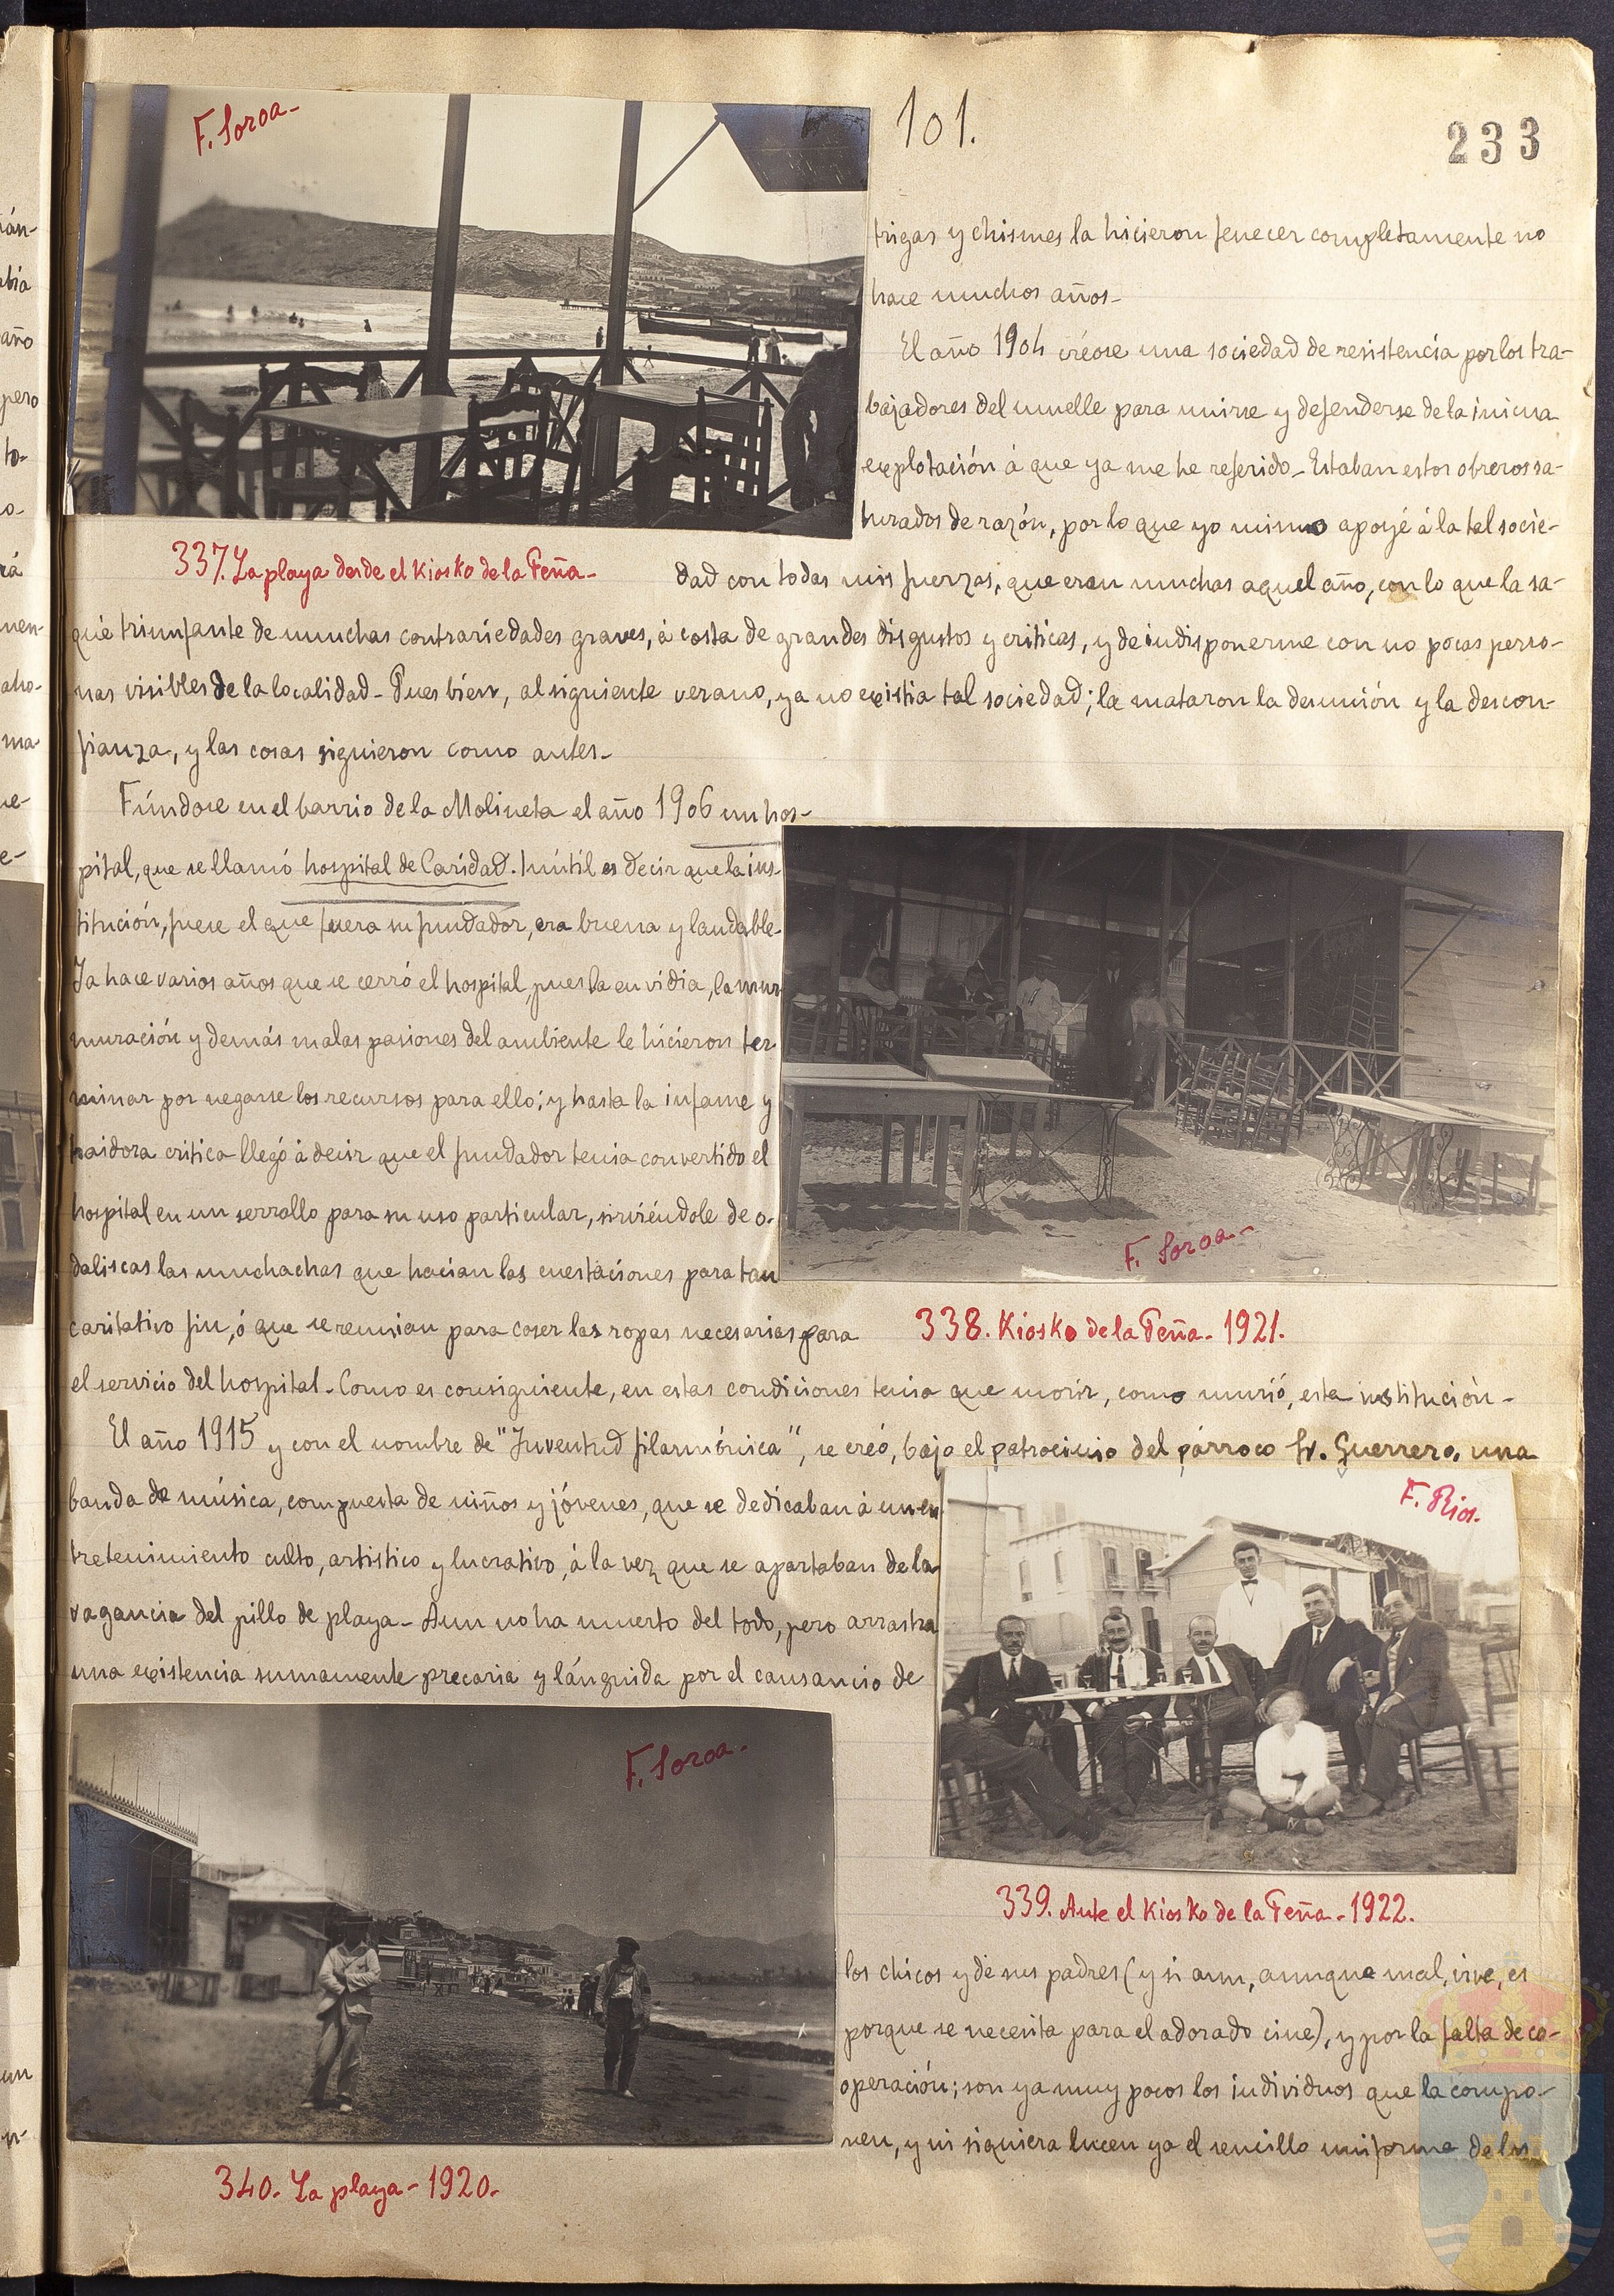 101.
233
F. Soroa-
trigas y chismes la hicieron fenecer completamente no
hace muchos años-
El año 1904 créose una sociedad de resistencia por los tra-
bajadores del muelle para unirse y defenderse de la inicua
explotación á que ya me he referido- Estaban estos obreros sa-
turados de razón, por lo que yo mismo apoyé á la tal socie-
337. La playa desde el Kiosko de la Peña-
dad con todas mis fuerzas, que eran muchas aquel año, con lo que la sa-
qué triunfante de muchas contrariedades graves, á costa de grandes disgustos y criticas, y de indisponerme con no pocas perso-
nas visibles de la localidad- Pues bien, al siguiente verano, ya no existia tal sociedad; la mataron la desunión y la descon-
fianza, y las cosas siguieron como antes-
Fúndose en el barrio de la Molineta el año 1906 un hos-
pital, que se llamó hospital de Caridad. Inútil es decir que la ins-
titución, fuese el que fuera su fundador, era buena y laudable-
Ya hace varios años que se cerró el hospital, pues la envidia, la mur
muración y demás malas pasiones del ambiente le hicieron ter
minar por negarse los recursos para ello; y hasta la infame y
traidora critica llegó á decir que el fundador tenia convertido el
hospital en un serrallo para su uso particular, sirviéndole de o-
daliscas las muchachas que hacian las cuestaciones para tan
F. Soroa-
caritativo fin, ó que se reunian para coser las ropas necesarias para
338. Kiosko de la Peña- 1921.
el servicio del hospital- Como es consiguiente, en estas condiciones tenia que morir, como murió, esta institución-
El año 1915 y con el nombre de "Juventud filarmónica", se creó, bajo el patrocinio del párroco Sr. Guerrero, una
banda de música, compuesta de niños y jóvenes, que se dedicaban á un en
tretenimiento culto, artistico y lucrativo, á la vez que se apartaban de la
vagancia del pillo de playa- Aun no ha muerto del todo, pero arrastra
una existencia sumamente precaria y lánguida por el cansancio de
F. Rios.
339. Ante el Kiosko de la Peña- 1922.
F. Soroa-
los chicos y de sus padres (y si aun, aunque mal, vive, es
porque se necesita para el adorado cine), y por la falta de co-
operación; son ya muy pocos los individuos que la compo-
nen, y ni siquiera lucen ya el sencillo uniforme de los
340. La playa- 1920.